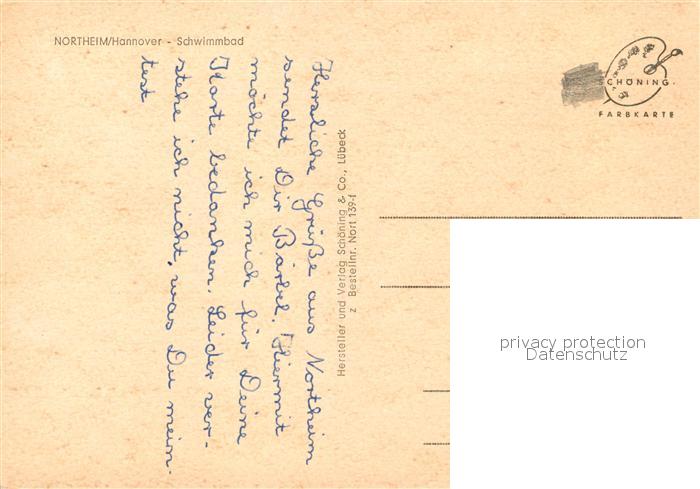 NORTHEIM/Hannover - Schwimmbad
SCHÖNING
FARBKARTE
Herzliche Grüße aus Northeim
sendet Dir Bärbel. Hiermit
möchte ich mich für Deine
Karte bedanken. Leider ver-
stehe ich nicht, was Du mein-
test
Hersteller und Verlag Schöning & Co., Lübeck
z Bestellnr. Nort 1394
privacy protection
Datenschutz